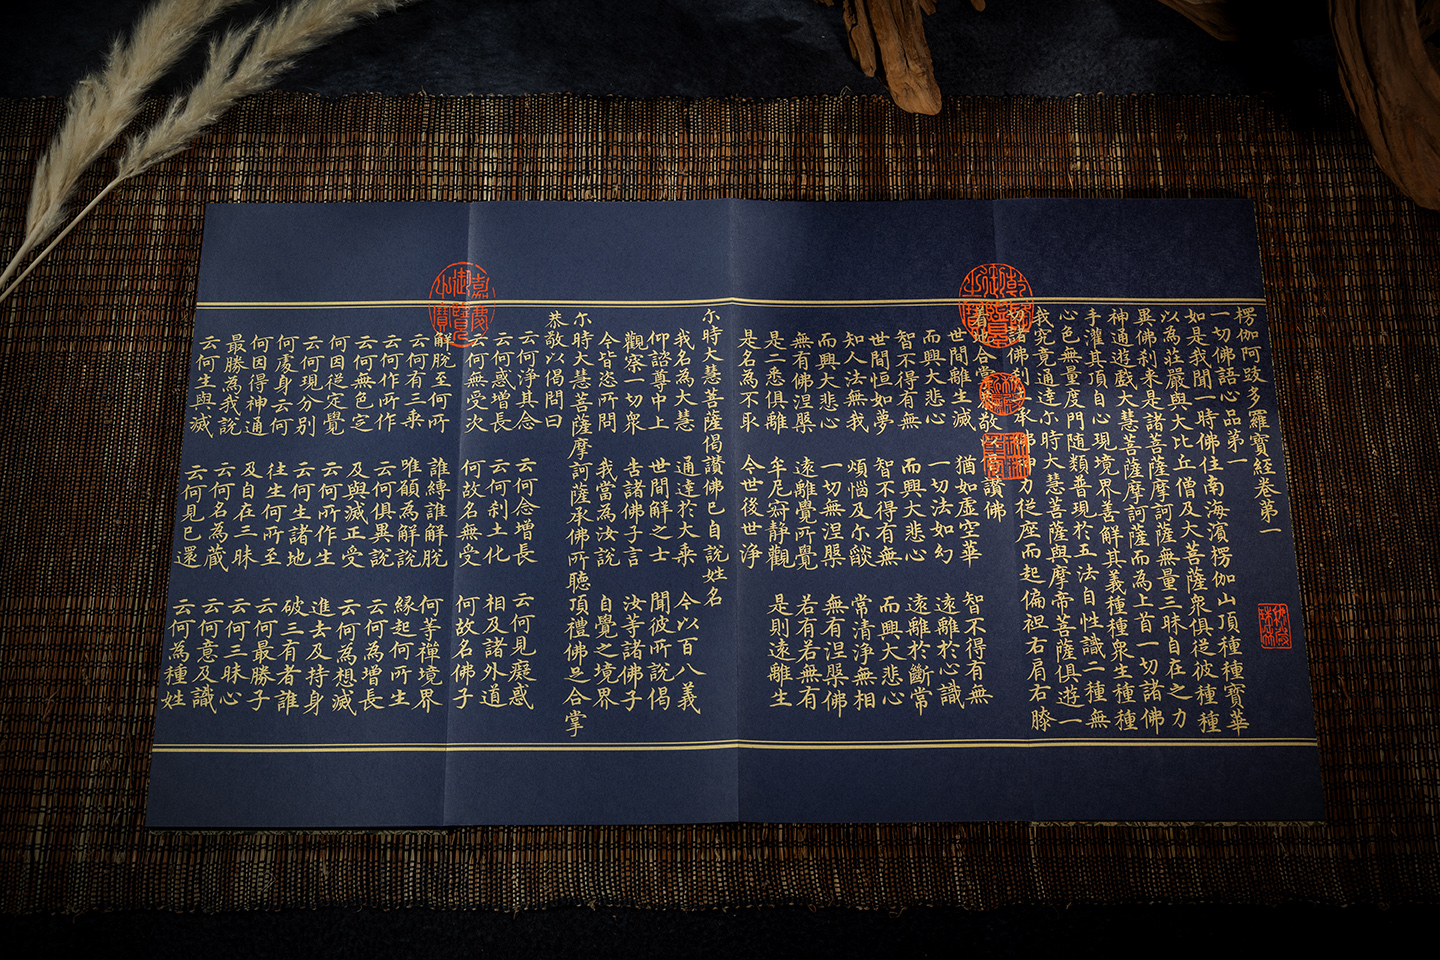 楞伽阿跋多羅寶經卷第一
一切佛語心品第一
如是我聞一時佛住南海濱楞伽山頂種種寶華
以為莊嚴與大比丘僧及大菩薩衆俱從彼種種
異佛刹来是諸菩薩摩訶薩無量三昧自在之力
神通遊戲大慧菩薩摩訶薩而為上首一切諸佛
手灌其頂自心現境界善解其義種種衆生種種
心色無量度門随類普現於五法自性識二種無
我究竟通達尓時大慧菩薩與摩帝菩薩俱遊一
切諸佛刹土承佛神力從座而起偏袒右肩右膝
著地合掌恭敬以偈讚佛
世間離生滅 猶如虛空華 智不得有無
而興大悲心 一切法如幻 遠離於心識
智不得有無 而興大悲心 遠離於斷常
世間恒如夢 智不得有無 而興大悲心
知人法無我 煩惱及尓燄 常清淨無相
而興大悲心 一切無涅槃 無有涅槃佛
無有佛涅槃 遠離覺所覺 若有若無有
是二悉俱離 牟尼寂静觀 是則遠離生
是名為不取 今世後世淨
尓時大慧菩薩偈讚佛已自說姓名
我名為大慧 通達於大乘 今以百八義
仰諮尊中上 世間解之士 聞彼所說偈
觀察一切衆 告諸佛子言 汝等諸佛子
今皆恣所問 我當為汝說 自覺之境界
尓時大慧菩薩摩訶薩承佛所聽頂禮佛足合掌
恭敬以偈問曰
云何淨其念 云何念增長 云何見癡惑
云何惑增長 云何刹土化 相及諸外道
云何無受次 何故名無受 何故名佛子
解脫至何所 誰縛誰解脫 何等禪境界
云何有三乘 唯願為解說 緣起何所生
云何作所作 云何俱異說 云何為增長
云何無色定 及與滅正受 云何為想滅
何因從定覺 云何所作生 進去及持身
云何現分別 云何生諸地 破三有者誰
何處身云何 往生何所至 云何最勝子
何因得神通 及自在三昧 云何三昧心
最勝為我說 云何名為藏 云何意及識
云何生與滅 云何見已還 云何為種姓
嘉慶御覽之寶
乾隆御覽之寶